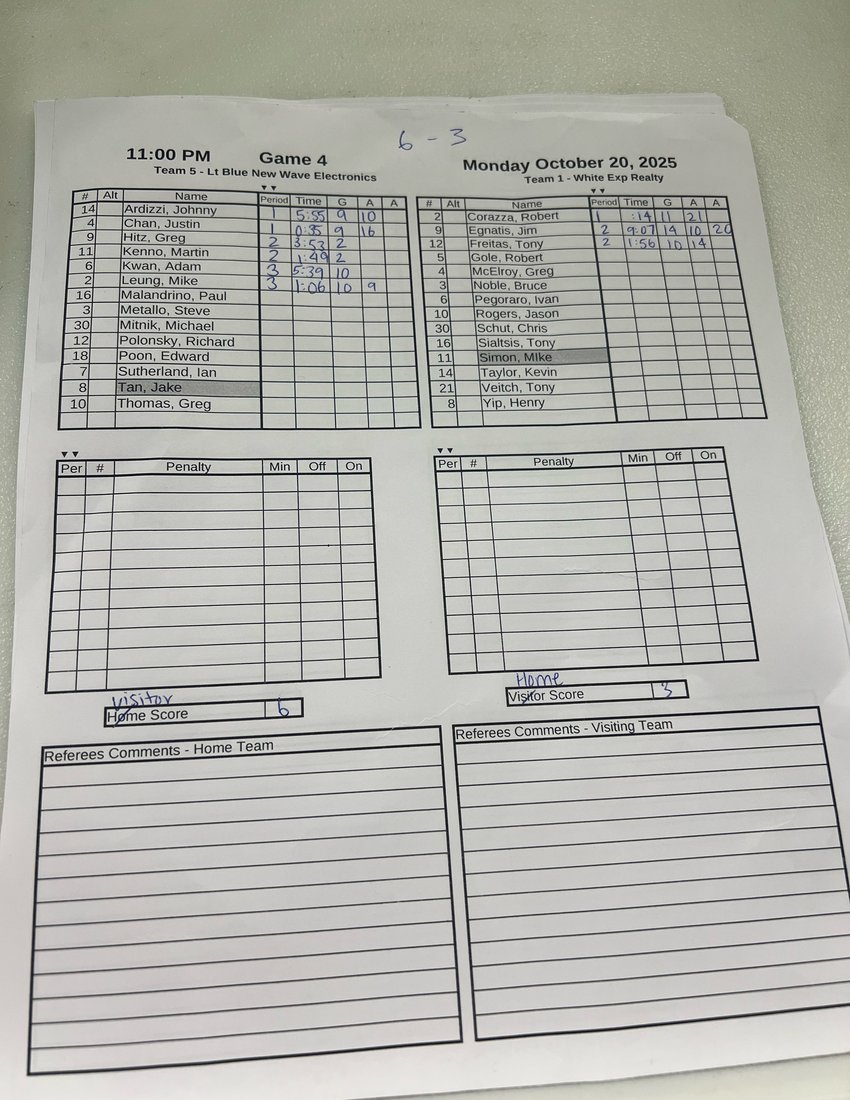 6 - 3
11:00 PM Game 4 Monday October 20, 2025
Team 5 - Lt Blue New Wave Electronics Team 1 - White Exp Realty
# Alt Name Period Time G A A
14 Ardizzi, Johnny 1 5:55 9 10
4 Chan, Justin 1 0:35 9 16
9 Hitz, Greg 2 3:53 2
11 Kenno, Martin 2 1:49 2
6 Kwan, Adam 3 5:39 10
2 Leung, Mike 3 1:06 10 9
16 Malandrino, Paul
3 Metallo, Steve
30 Mitnik, Michael
12 Polonsky, Richard
18 Poon, Edward
7 Sutherland, Ian
8 Tan, Jake
10 Thomas, Greg
# Alt Name Period Time G A A
2 Corazza, Robert 1 :14 11 21
9 Egnatis, Jim 2 9:07 14 10 20
12 Freitas, Tony 2 1:56 10 14
5 Gole, Robert
4 McElroy, Greg
3 Noble, Bruce
6 Pegoraro, Ivan
10 Rogers, Jason
30 Schut, Chris
16 Sialtsis, Tony
11 Simon, MIke
14 Taylor, Kevin
21 Veitch, Tony
8 Yip, Henry
Per # Penalty Min Off On
Per # Penalty Min Off On
Visitor
Home Score 6
Home
Visitor Score 3
Referees Comments - Home Team
Referees Comments - Visiting Team